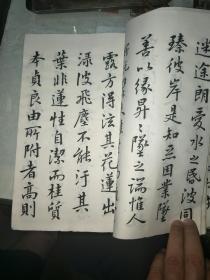 迷途朗愛水之昏波同
臻彼岸是知惡因業墜
善以緣昇〻墜之端惟人
露方得泫其花蓮出
淥波飛塵不能汙其
葉非蓮性自潔而桂質
本貞良由所附者高則